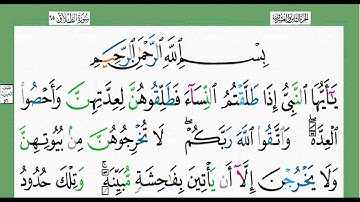 سُورَةُ الطَّلَاقِ ٦٥
بِسْمِ ٱللَّهِ ٱلرَّحْمَٰنِ ٱلرَّحِيمِ
يَٰٓأَيُّهَا ٱلنَّبِيُّ إِذَا طَلَّقْتُمُ ٱلنِّسَآءَ فَطَلِّقُوهُنَّ لِعِدَّتِهِنَّ وَأَحْصُوا۟
ٱلْعِدَّةَ ۖ وَٱتَّقُوا۟ ٱللَّهَ رَبَّكُمْ ۖ لَا تُخْرِجُوهُنَّ مِنۢ بُيُوتِهِنَّ
وَلَا يَخْرُجْنَ إِلَّآ أَن يَأْتِينَ بِفَٰحِشَةٍ مُّبَيِّنَةٍ ۚ وَتِلْكَ حُدُودُ